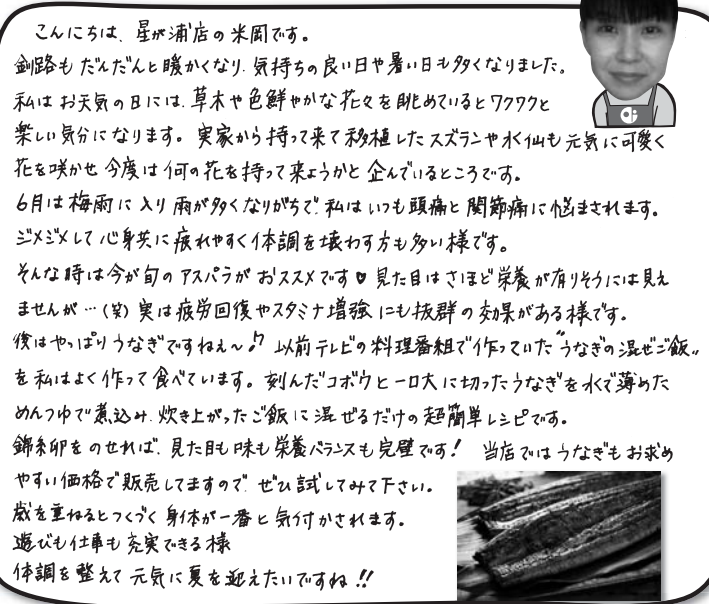 こんにちは、星が浦店の米岡です。
釧路もだんだんと暖かくなり、気持ちの良い日や暑い日も多くなりました。
私はお天気の日には、草木や色鮮やかな花々を眺めているとワクワクと
楽しい気分になります。実家から持って来て移植したスズランや水仙も元気に可愛く
花を咲かせ今度は何の花を持って来ようかと企んでいるところです。
6月は梅雨に入り雨が多くなりがちで、私はいつも頭痛と関節痛に悩まされます。
ジメジメして心身共に疲れやすく体調を壊わす方も多い様です。
そんな時は今が旬のアスパラがおススメです♥見た目はさほど栄養が有りそうには見え
ませんが…(笑)実は疲労回復やスタミナ増強にも抜群の効果がある様です。
後はやっぱりうなぎですねぇ～!?以前テレビの料理番組で作っていた"うなぎの混ぜご飯"
を私はよく作って食べています。刻んだゴボウと一口大に切ったうなぎを水で薄めた
めんつゆで煮込み、炊き上がったご飯に混ぜるだけの超簡単レシピです。
錦糸卵をのせれば、見た目も味も栄養バランスも完璧です!当店ではうなぎもお求め
やすい価格で販売してますので、ぜひ試してみて下さい。
歳を重ねるとつくづく身体が一番と気付かされます。
遊びも仕事も充実できる様
体調を整えて元気に夏を迎えたいですね!!